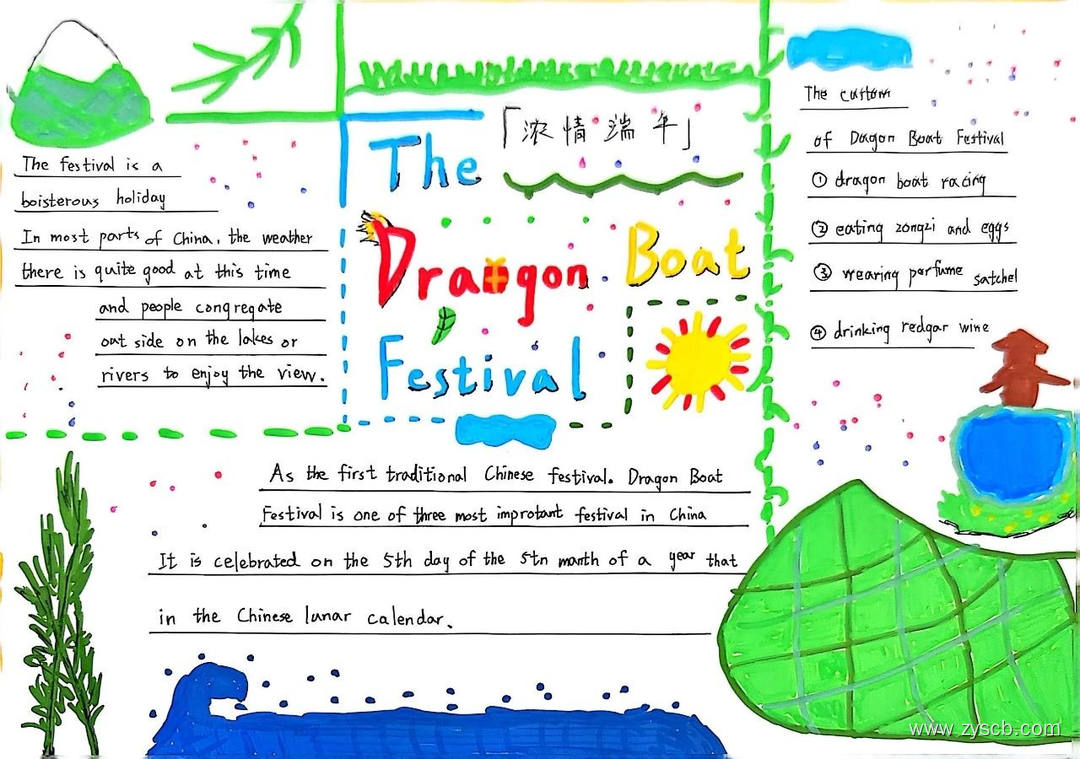 「浓情端午」
The
Dragon Boat
Festival
The festival is a
boisterous holiday
In most parts of China, the weather
there is quite good at this time
and people congregate
out side on the lakes or
rivers to enjoy the view.
As the first traditional Chinese festival. Dragon Boat
Festival is one of three most improtant festival in China
It is celebrated on the 5th day of the 5tn manth of a year that
in the Chinese lunar calendar.
The custom
of Dragon Boat Festival
① dragon boat racing
② eating zongzi and eggs
③ wearing perfume satchel
④ drinking redgar wine
www.zyscb.com